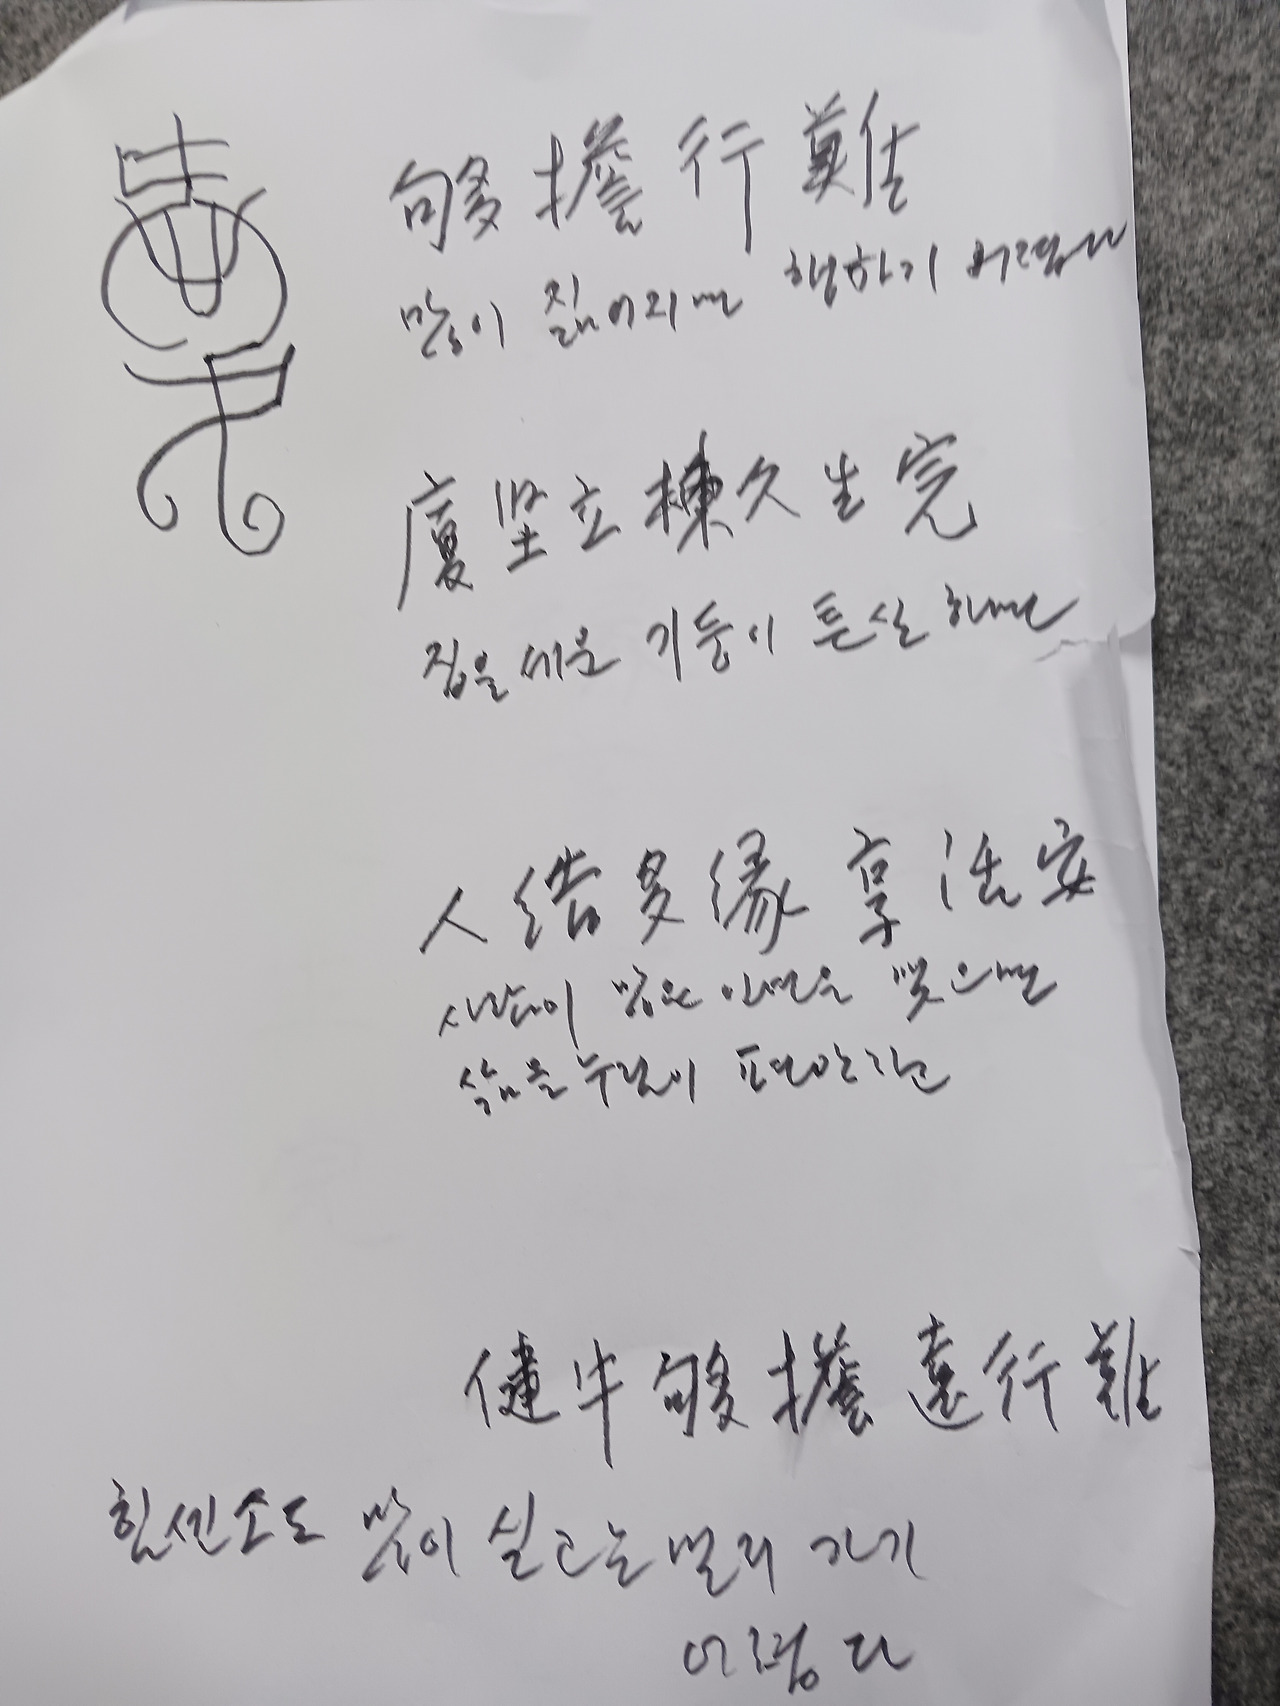 够擔行難
많이 짊어지면 행하기 어렵다
廈坚立棟久生完
집을 세운 기둥이 튼실하면
人结多缘享活安
사람이 많은 인연을 맺으면
삶을 누림이 편안하고
健牛够擔遠行難
힘센소도 많이 싣고는 멀리 가기
어렵다